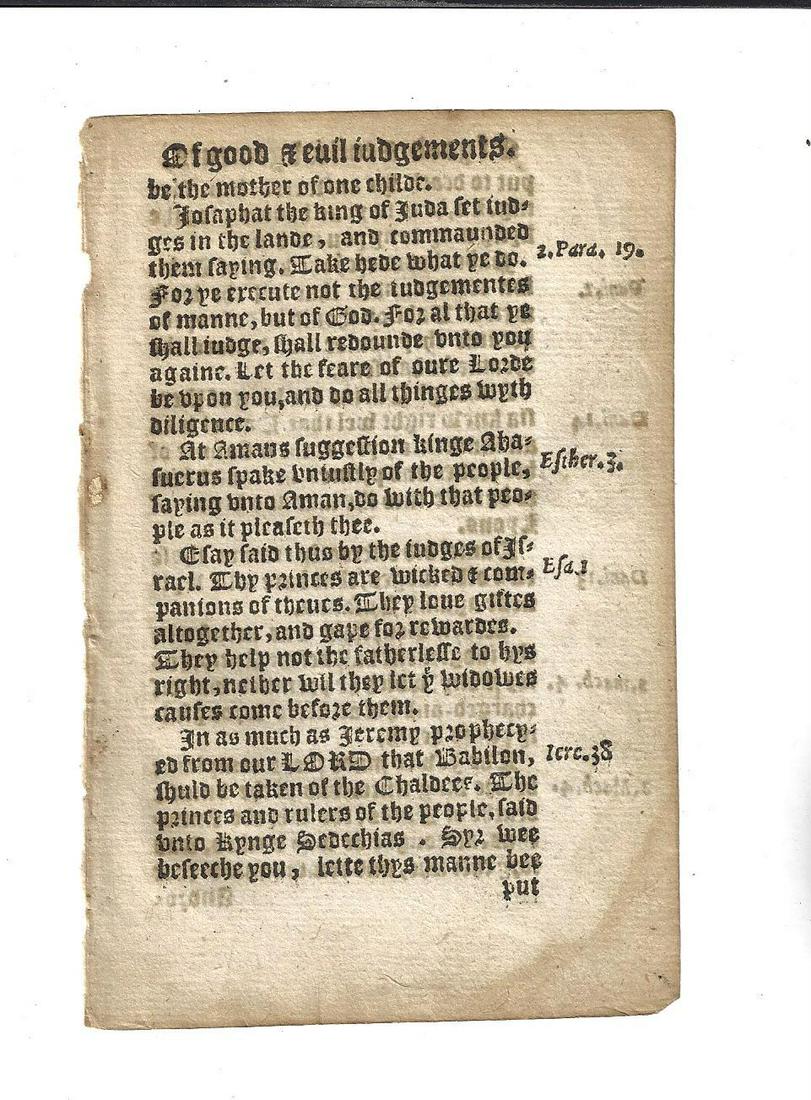 Of good & euil iudgements.
be the mother of one childe.
Josaphat the king of Juda set iud-
ges in the lande, and commaunded
them saying. Take hede what ye do.
2. Para. 19.
For ye execute not the iudgementes
of manne, but of God. For al that ye
shall iudge, shall redounde vnto you
againe. Let the feare of oure Lorde
be vpon you, and do all thinges wyth
diligence.
At Amans suggestion kinge Aha-
suerus spake vniustly of the people,
Esther. 3.
saying vnto Aman, do with that peo-
ple as it pleaseth thee.
Esay said thus by the iudges of Is-
rael. Thy princes are wicked & com-
Esa. 1
panions of theues. They loue giftes
altogether, and gape for rewardes.
They help not the fatherlesse to hys
right, neither wil they let yͤ widowes
causes come before them.
In as much as Jeremy prophecy-
ed from our LORD that Babilon,
Iere. 38
shuld be taken of the Chaldees. The
princes and rulers of the people, said
vnto Kynge Sedechias . Syr wee
beseeche you, lette thys manne bee
put